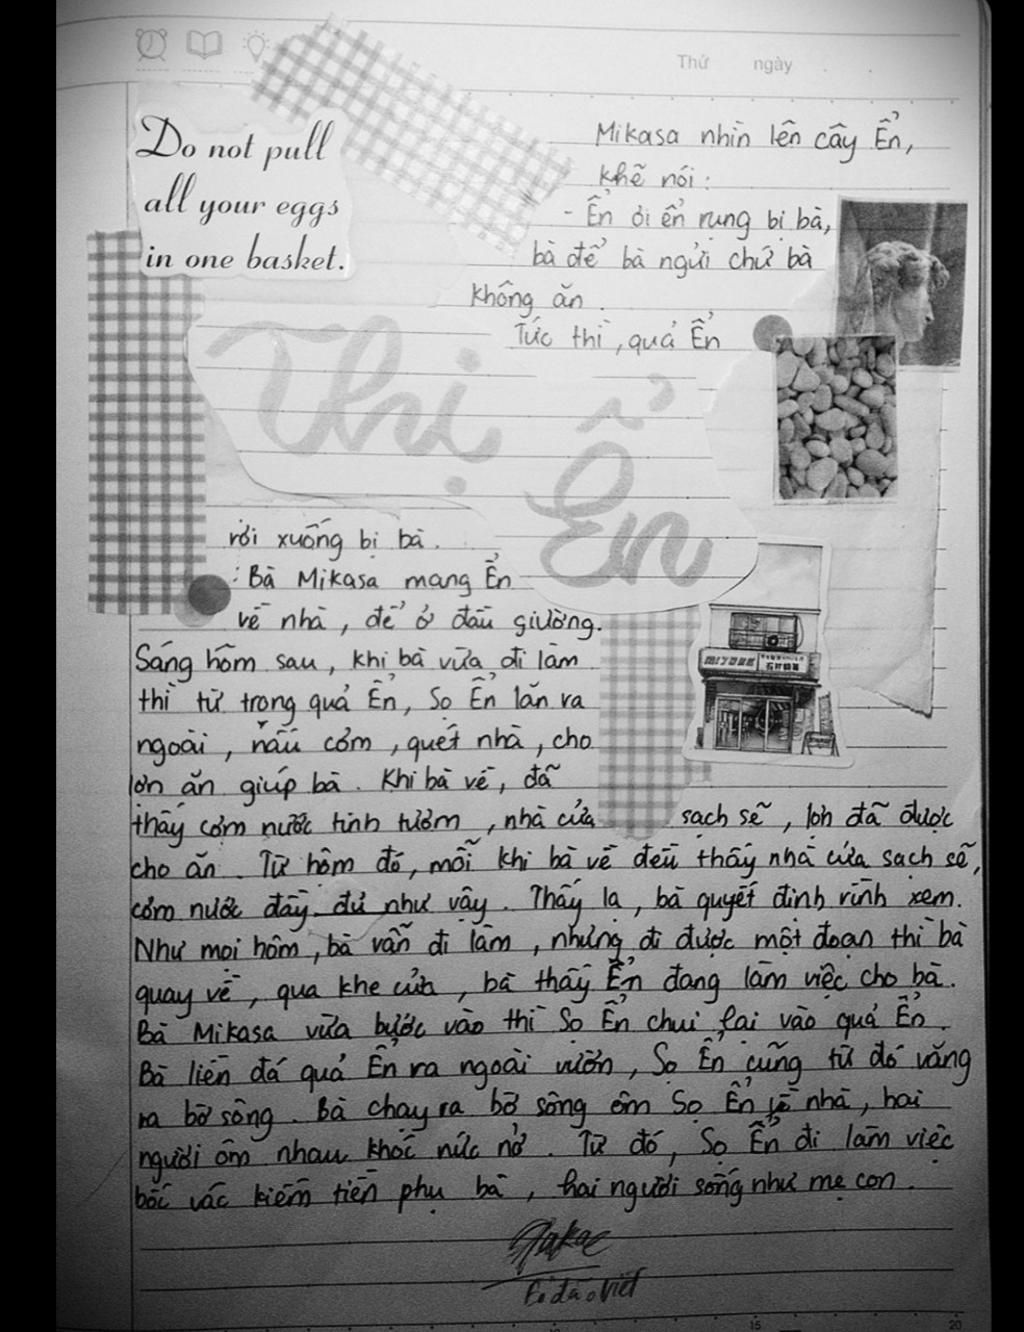 Thứ ngày
Do not pull
all your eggs
in one basket.
Mikasa nhìn lên cây Ển,
khẽ nói:
- Ển ơi ển rụng bị bà,
bà để bà ngửi chứ bà
không ăn.
Tức thì, quả Ển
Thị Ển
rơi xuống bị bà.
Bà Mikasa mang Ển
về nhà, để ở đầu giường.
Sáng hôm sau, khi bà vừa đi làm
thì từ trong quả Ển, Sọ Ển lăn ra
ngoài, nấu cơm, quét nhà, cho
lợn ăn giúp bà. Khi bà về, đã
thấy cơm nước tinh tươm, nhà cửa sạch sẽ, lợn đã được
cho ăn. Từ hôm đó, mỗi khi bà về đều thấy nhà cửa sạch sẽ,
cơm nước đầy đủ như vậy. Thấy lạ, bà quyết định rình xem.
Như mọi hôm, bà vẫn đi làm, nhưng đi được một đoạn thì bà
quay về, qua khe cửa, bà thấy Ển đang làm việc cho bà.
Bà Mikasa vừa bước vào thì Sọ Ển chui lại vào quả Ển.
Bà liền đá quả Ển ra ngoài vườn, Sọ Ển cũng từ đó văng
ra bờ sông. Bà chạy ra bờ sông ôm Sọ Ển về nhà, hai
người ôm nhau khóc nức nở. Từ đó, Sọ Ển đi làm việc
bốc vác kiếm tiền phụ bà, hai người sống như mẹ con.
15 20